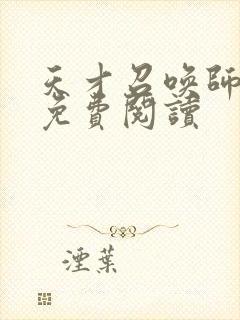 天才召喚師
免費閱讀
湮葉